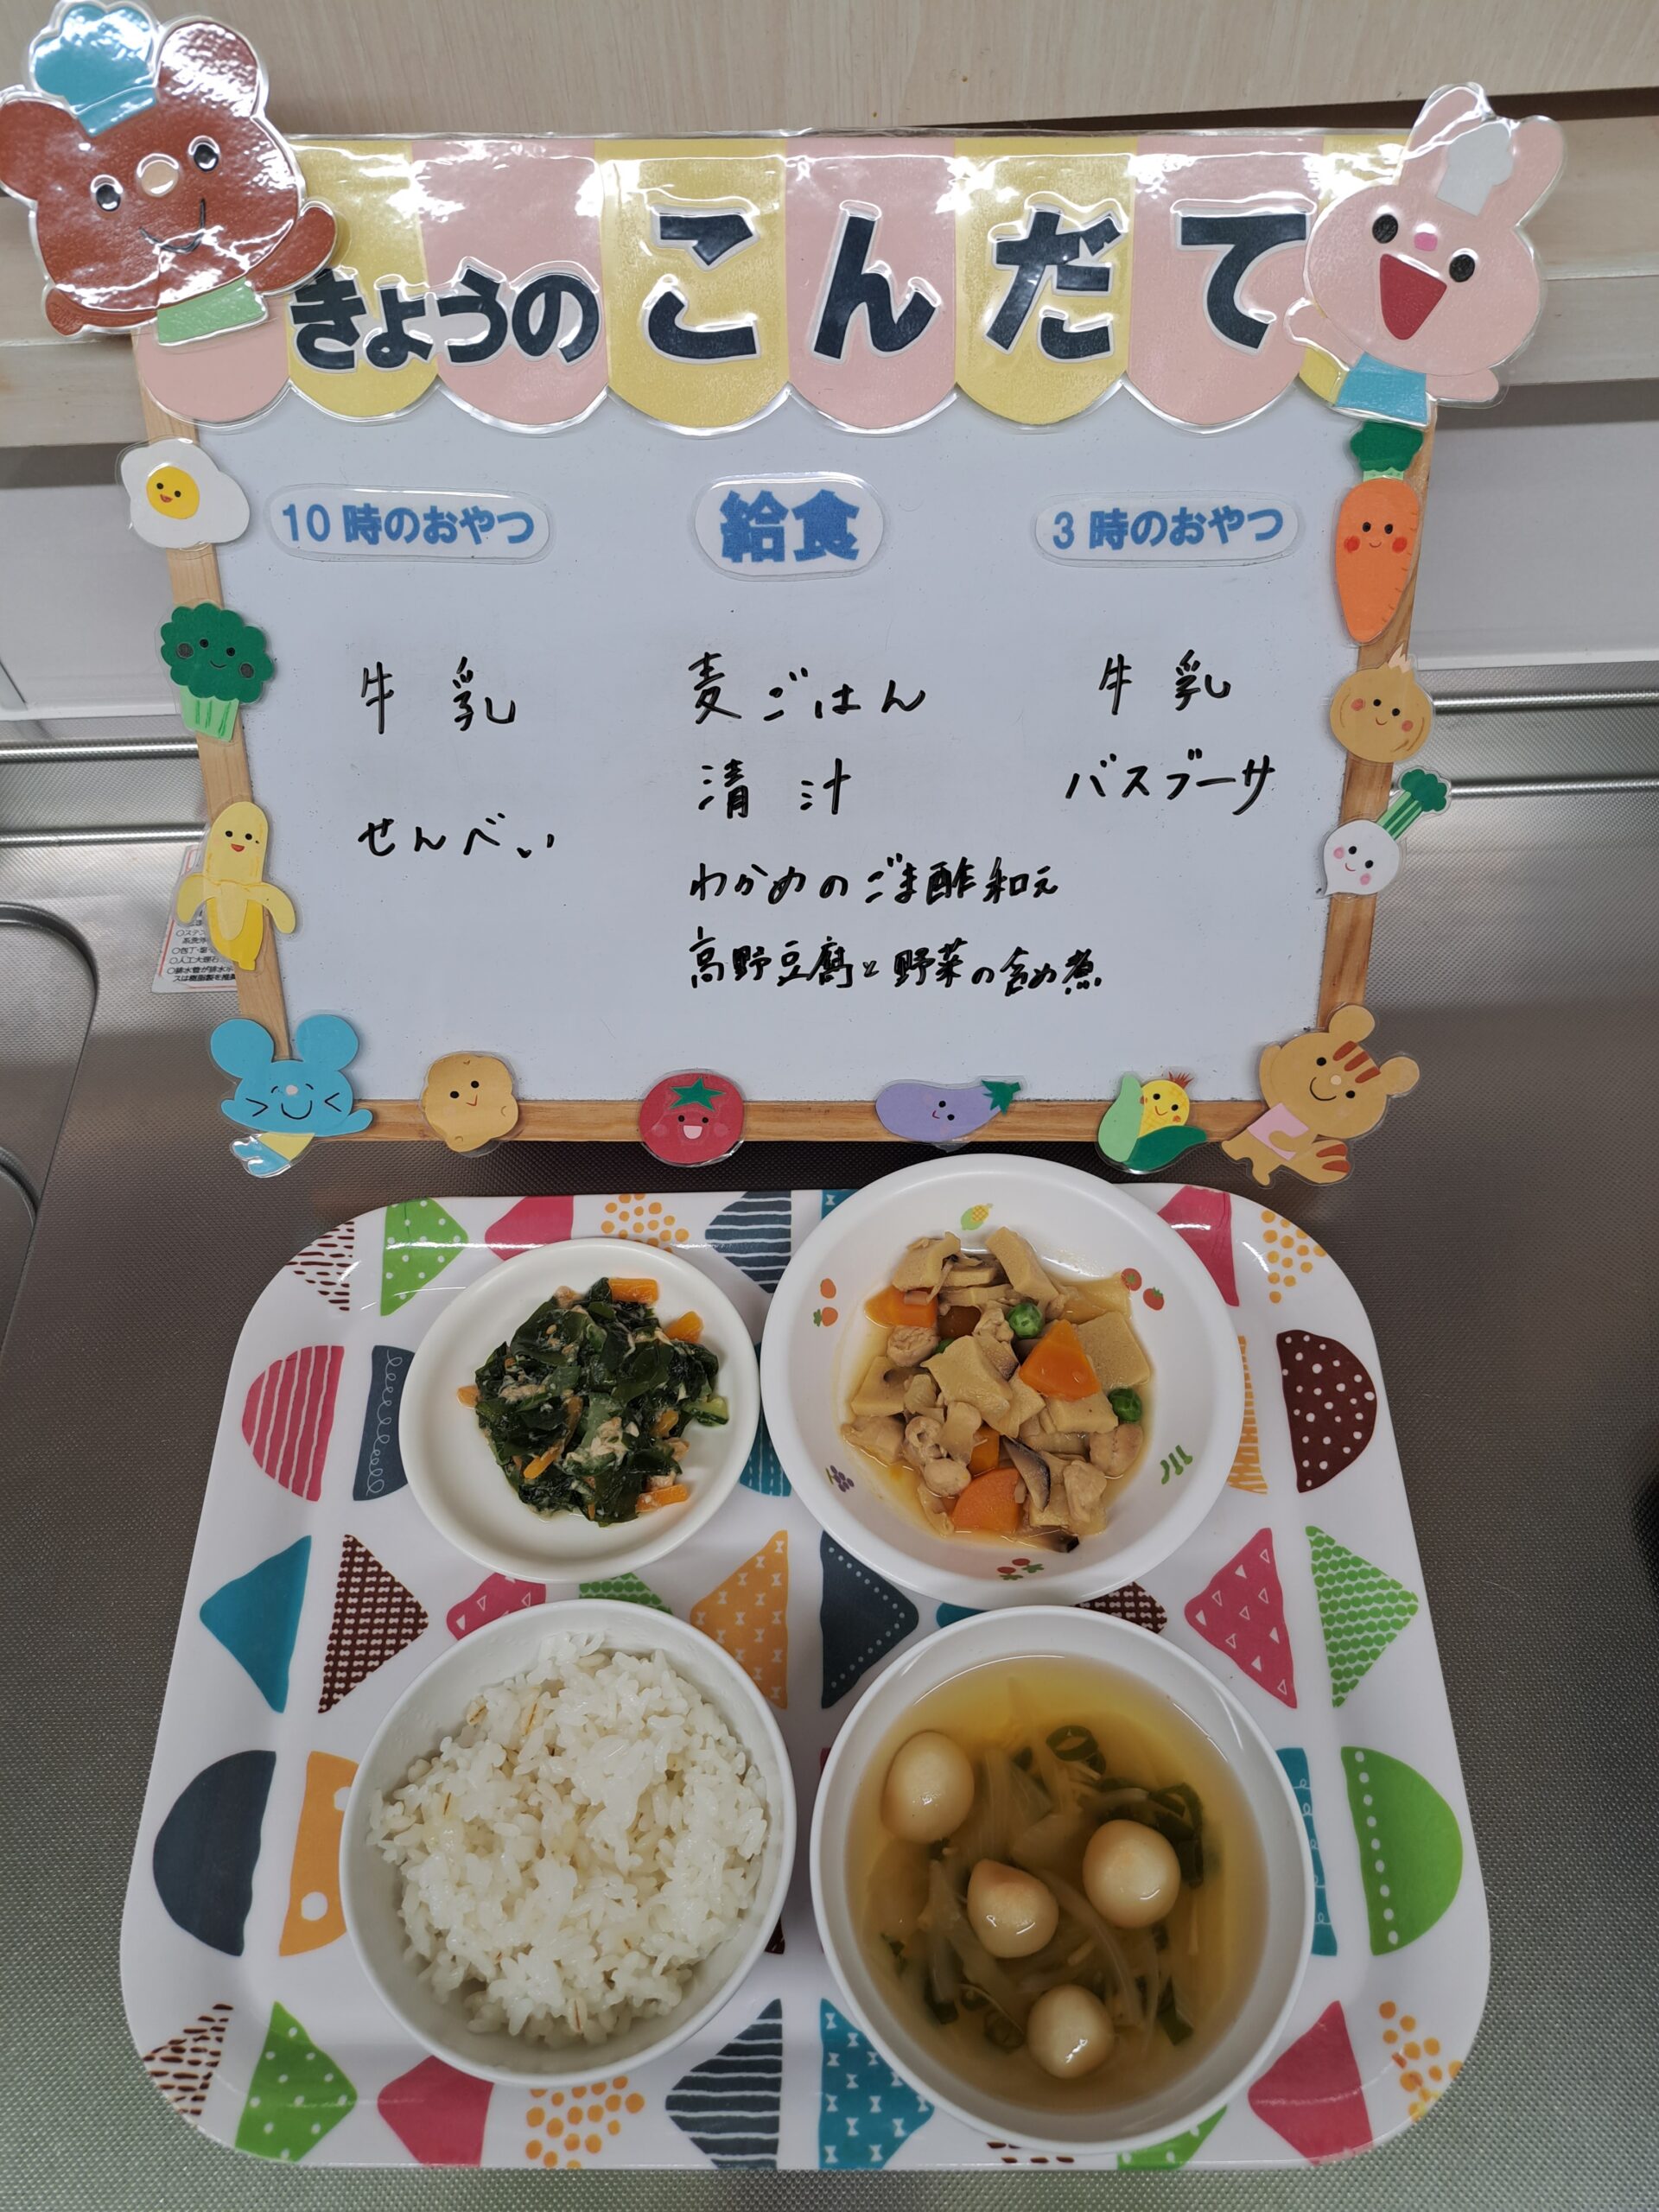 きょうの こんだて
10時のおやつ
牛乳
せんべい
給食
麦ごはん
清汁
わかめのごま酢和え
高野豆腐と野菜の含め煮
3時のおやつ
牛乳
バスブーサ